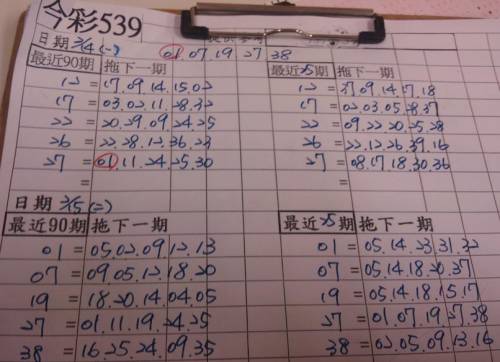 今彩539
日期 2/4 (一) 01.07.19.27.38
最近90期 拖下一期 最近25期 拖下一期
12 = 17.09.14.15.02 12 = 27.09.14.17.18
17 = 03.02.11.28.32 17 = 02.03.05.28.37
22 = 20.29.09.24.25 22 = 09.22.20.25.28
26 = 22.28.12.36.23 26 = 22.12.26.39.16
27 = 01.11.24.25.30 27 = 08.17.18.30.36
=
日期 2/5 (二)
最近90期 拖下一期 最近25期 拖下一期
01 = 05.02.09.12.13 01 = 05.14.23.31.32
07 = 09.05.12.18.20 07 = 05.14.18.20.37
19 = 18.20.14.04.05 19 = 05.14.18.15.17
27 = 01.11.19.24.25 27 = 01.07.19.27.38
38 = 16.25.24.09.35 38 = 02.05.09.13.16